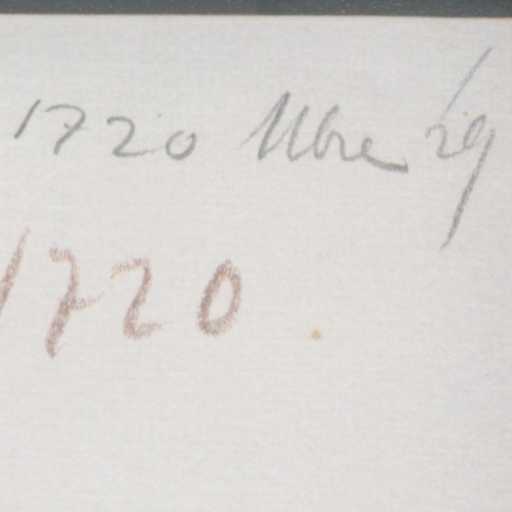 1720 Mbre 29
1720.